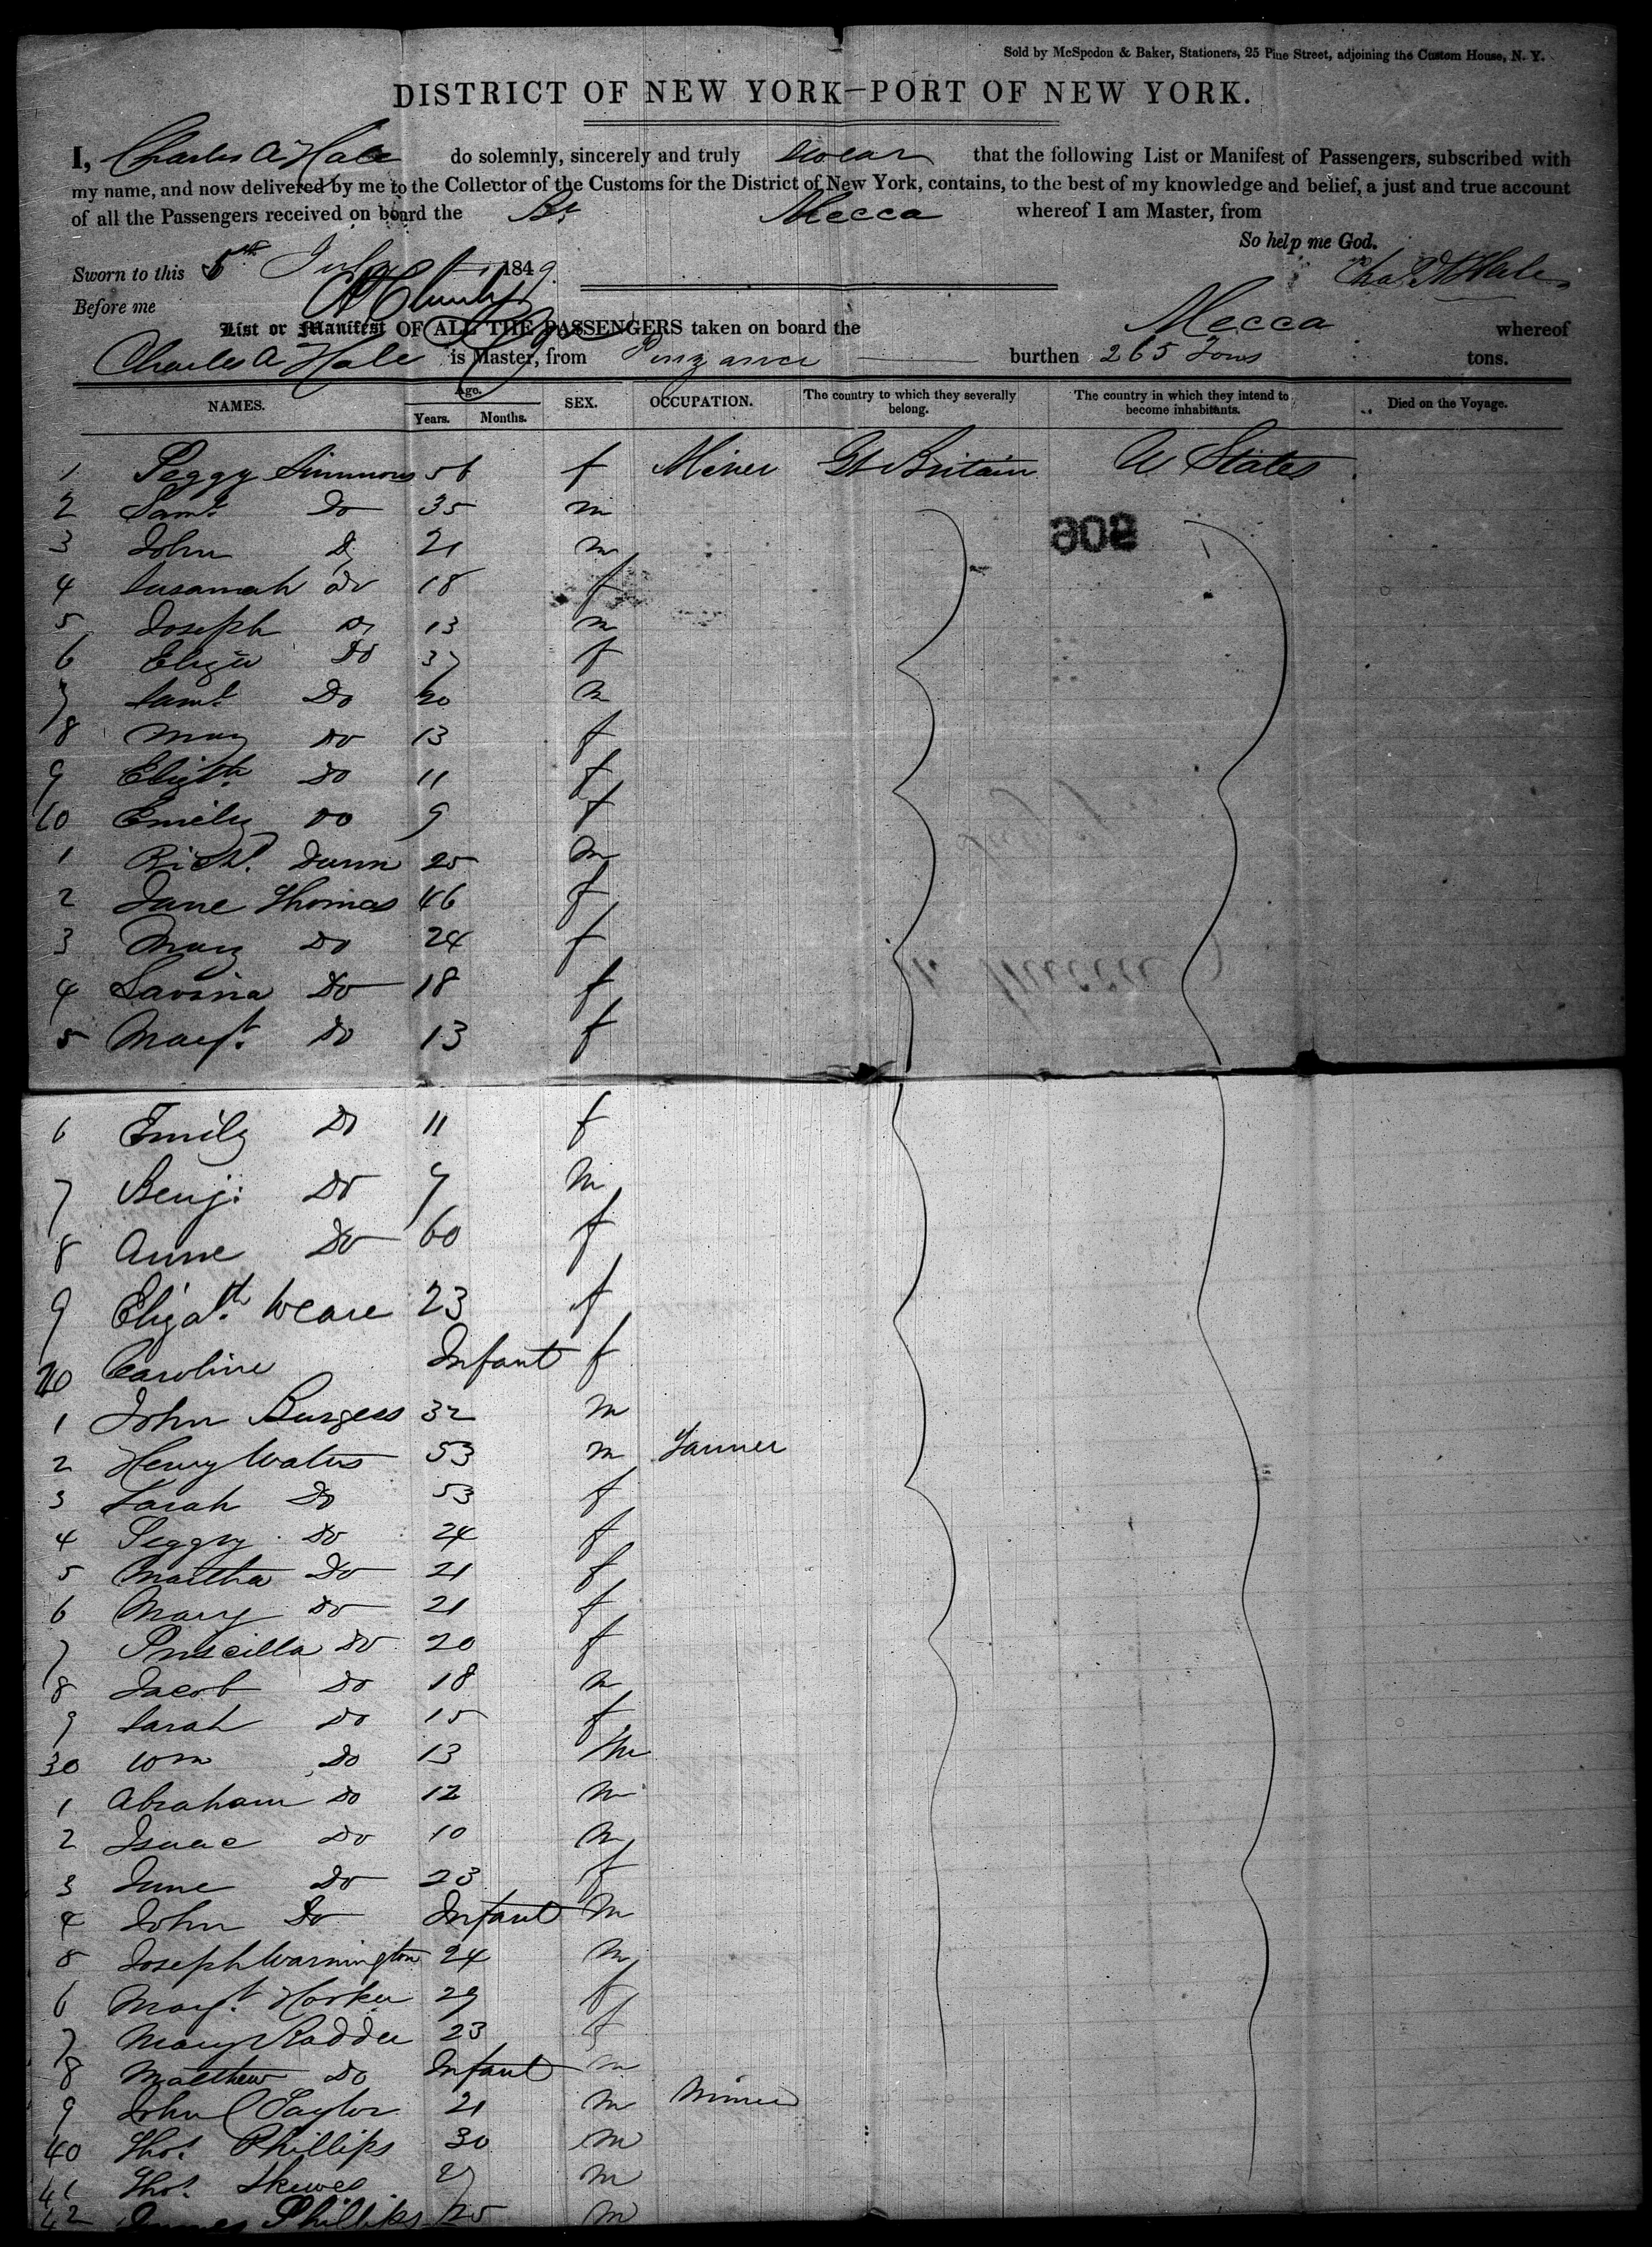 Sold by McSpedon & Baker, Stationers, 25 Pine Street, adjoining the Custom House, N. Y.
DISTRICT OF NEW YORK—PORT OF NEW YORK.
I, Charles A Hale do solemnly, sincerely and truly swear that the following List or Manifest of Passengers, subscribed with
my name, and now delivered by me to the Collector of the Customs for the District of New York, contains, to the best of my knowledge and belief, a just and true account
of all the Passengers received on board the Br Mecca whereof I am Master, from
So help me God.
Sworn to this 5th July 1849 Chas A Hale
Before me
List or Manifest OF ALL THE PASSENGERS taken on board the Mecca whereof
Charles A Hale is Master, from Penzance burthen 265 Tons tons.
NAMES. Age. Years. Months. SEX. OCCUPATION. The country to which they severally belong. The country in which they intend to become inhabitants. Died on the Voyage.
1 Peggy Simmons 56 f Miner Gt Britain U States
2 Saml Do 35 m
908
3 John Do 21 m
4 Susannah Do 18 f
5 Joseph Do 13 m
6 Eliza Do 37 f
7 Saml Do 20 m
8 Mary Do 13 f
9 Elizth Do 11 f
10 Emily Do 9 f
1 Richd Dunn 25 m
2 Jane Thomas 46 f
3 Mary Do 24 f
4 Lavinia Do 18 f
5 Margt Do 13 f
6 Emily Do 11 f
7 Benj: Do 9 m
8 Anne Do 60 f
9 Elizath Weare 23 f
20 Caroline Infant f
1 John Burgess 32 m
2 Henry Waters 53 m Farmer
3 Sarah Do 53 f
4 Peggy Do 24 f
5 Martha Do 21 f
6 Mary Do 21 f
7 Priscilla Do 20 f
8 Jacob Do 18 m
9 Sarah Do 15 f
30 Wm Do 13 m
1 Abraham Do 12 m
2 Isaac Do 10 m
3 Jane Do 23 f
4 John Do Infant m
5 Joseph Warmington 24 m
6 Margt Hosken 29 f
7 Mary Rodda 23 f
8 Matthew Do Infant m
9 John Taylor 21 m Miner
40 Thos Phillips 30 m
41 Thos Skewes 27 m
42 James Phillips 25 m